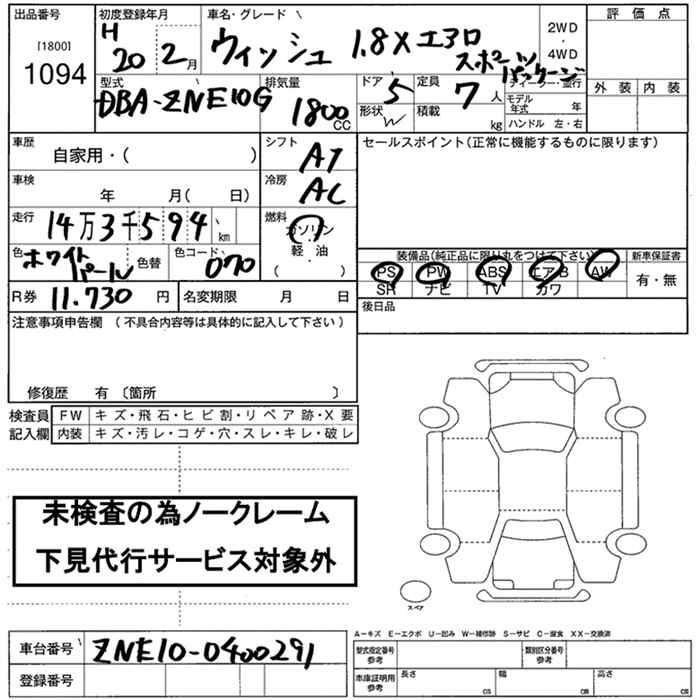 出品番号
[1800]
1094
初度登録年月
H
20 2月
車名・グレード
ウィッシュ 1.8X エアロ
スポーツ
パッケージ
2WD
・
4WD
評価点
外装 内装
型式
DBA-ZNE10G
排気量
1800
CC
ドア
5
形状
W
定員
7人
積載
kg
ディーラー・並行
モデル
年式
年
ハンドル 左・右
車歴
自家用・( )
シフト
AT
セールスポイント(正常に機能するものに限ります)
車検
年 月( 日)
冷房
AC
走行
14万3千594
km
燃料
ガソリン
軽・油
( )
色
ホワイト
パール
色替
色コード
070
装備品(純正品に限り丸をつけて下さい)
PS PW ABS エアB AW
SR ナビ TV カワ
新車保証書
有・無
R券 11.730 円
名変期限 月 日
後日品
注意事項申告欄 (不具合内容等は具体的に記入して下さい)
修復歴 有 〔箇所 〕
検査員
記入欄
FW キズ・飛石・ヒビ割・リペア跡・X要
内装 キズ・汚レ・コゲ・穴・スレ・キレ・破レ
未検査の為ノークレーム
下見代行サービス対象外
スペア
車台番号 ZNE10-0400291
登録番号
A-キズ E-エクボ U-凹み W-補修跡 S-サビ C-腐食 XX-交換済
型式指定番号
参考
類別区分番号
参考
車庫証明用
参考
長さ
cm
幅
cm
高さ
cm